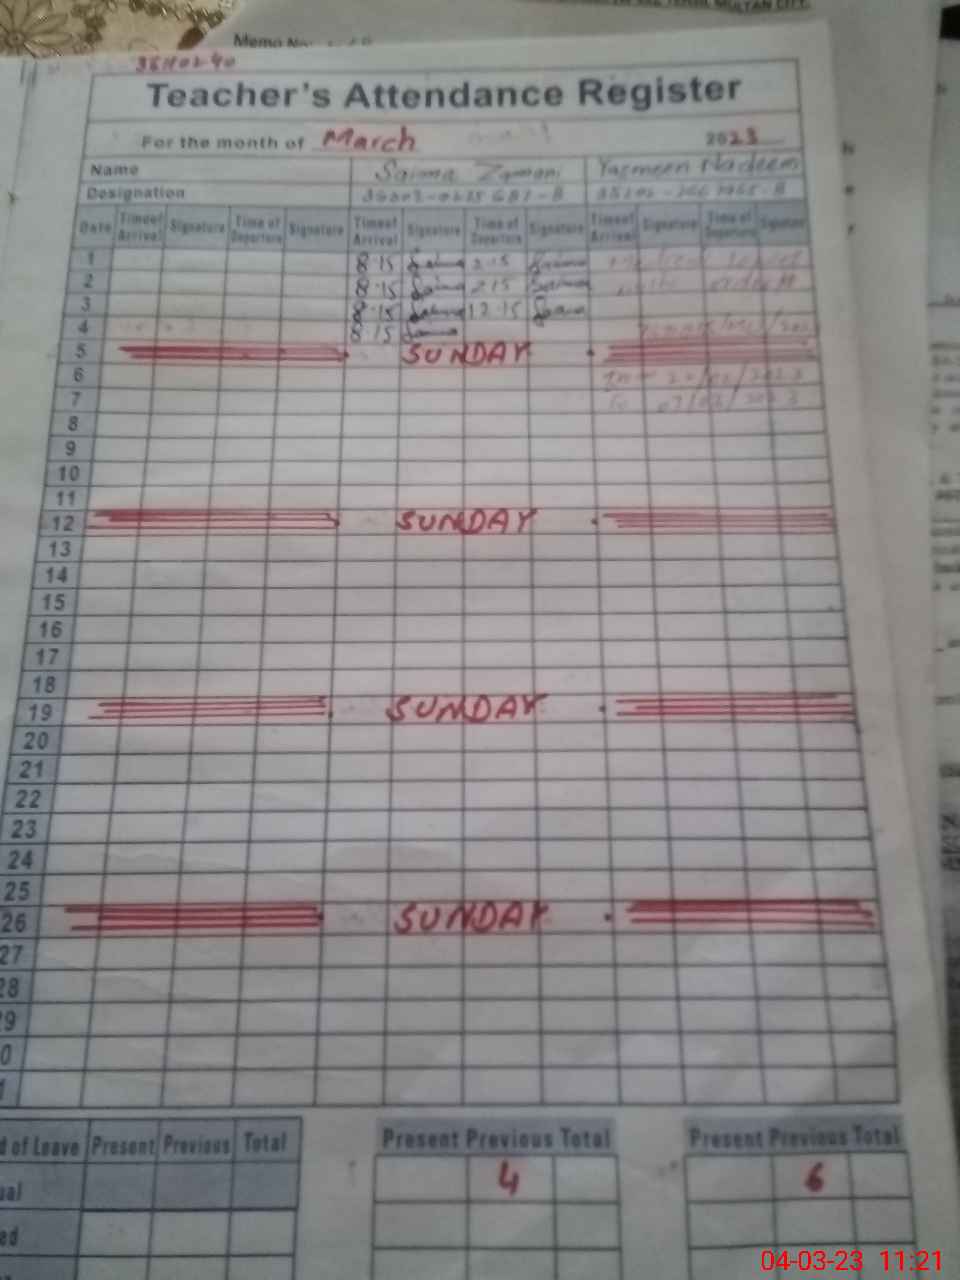 MULTAN CITY.
Memo No:
Teacher's Attendance Register
For the month of March 2023
Name Saima Yasmeen Nadeem
Designation
Date Timeof Arrival Signature Time of Departure Signature Timeof Arrival Signature Time of Departure Signature Timeof Arrival Signature Time of Departure Signature
1 8.15 Saima 2.15 Saima
2 8.15 Saima 2.15 Saima
3 8.15 Saima 12.15 Saima
4 8.15 Saima
5 SUNDAY
6
7
8
9
10
11
12 SUNDAY
13
14
15
16
17
18
19 SUNDAY
20
21
22
23
24
25
26 SUNDAY
27
28
9
0
1
d of Leave Present Previous Total Present Previous Total Present Previous Total
ual 4 6
ed
04-03-23 11:21